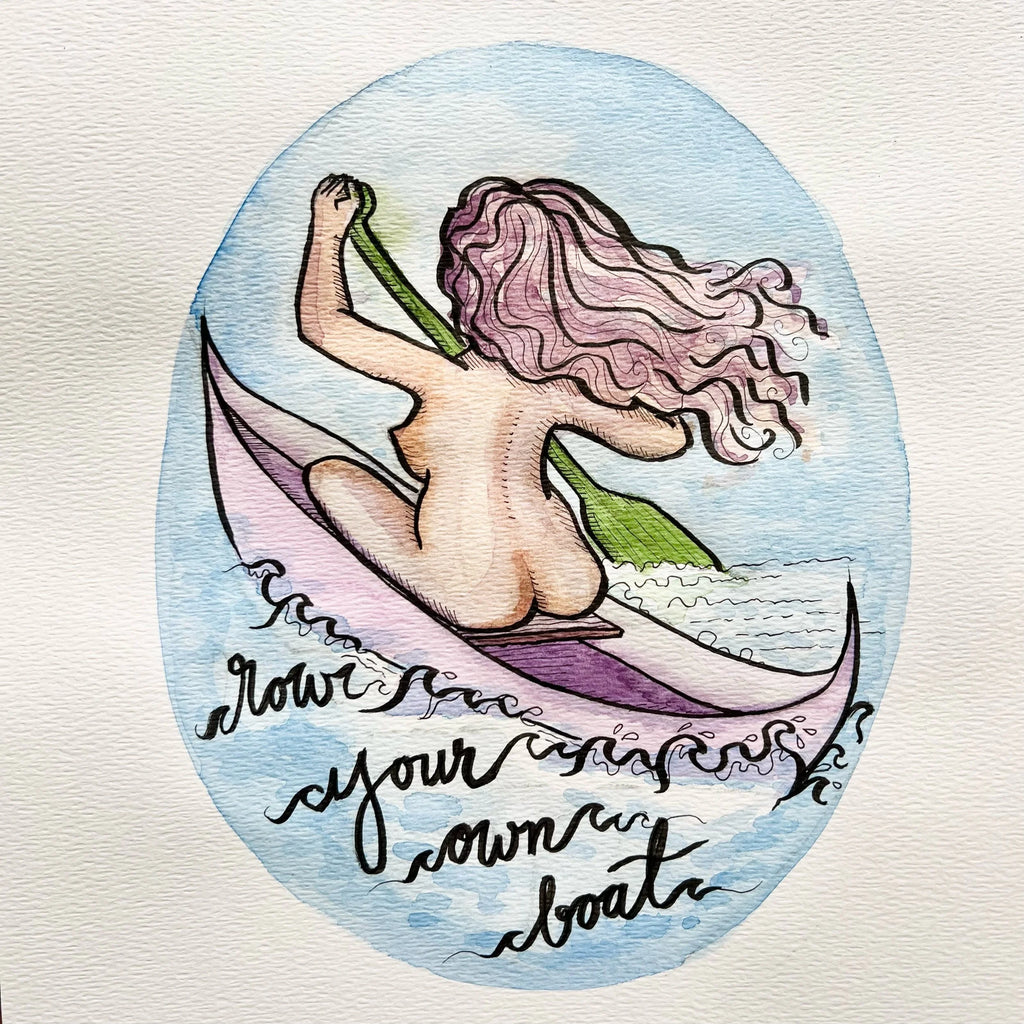 row
your
own
boat